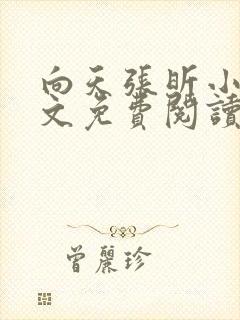 向天張昕小
文免費閱讀
曾麗珍